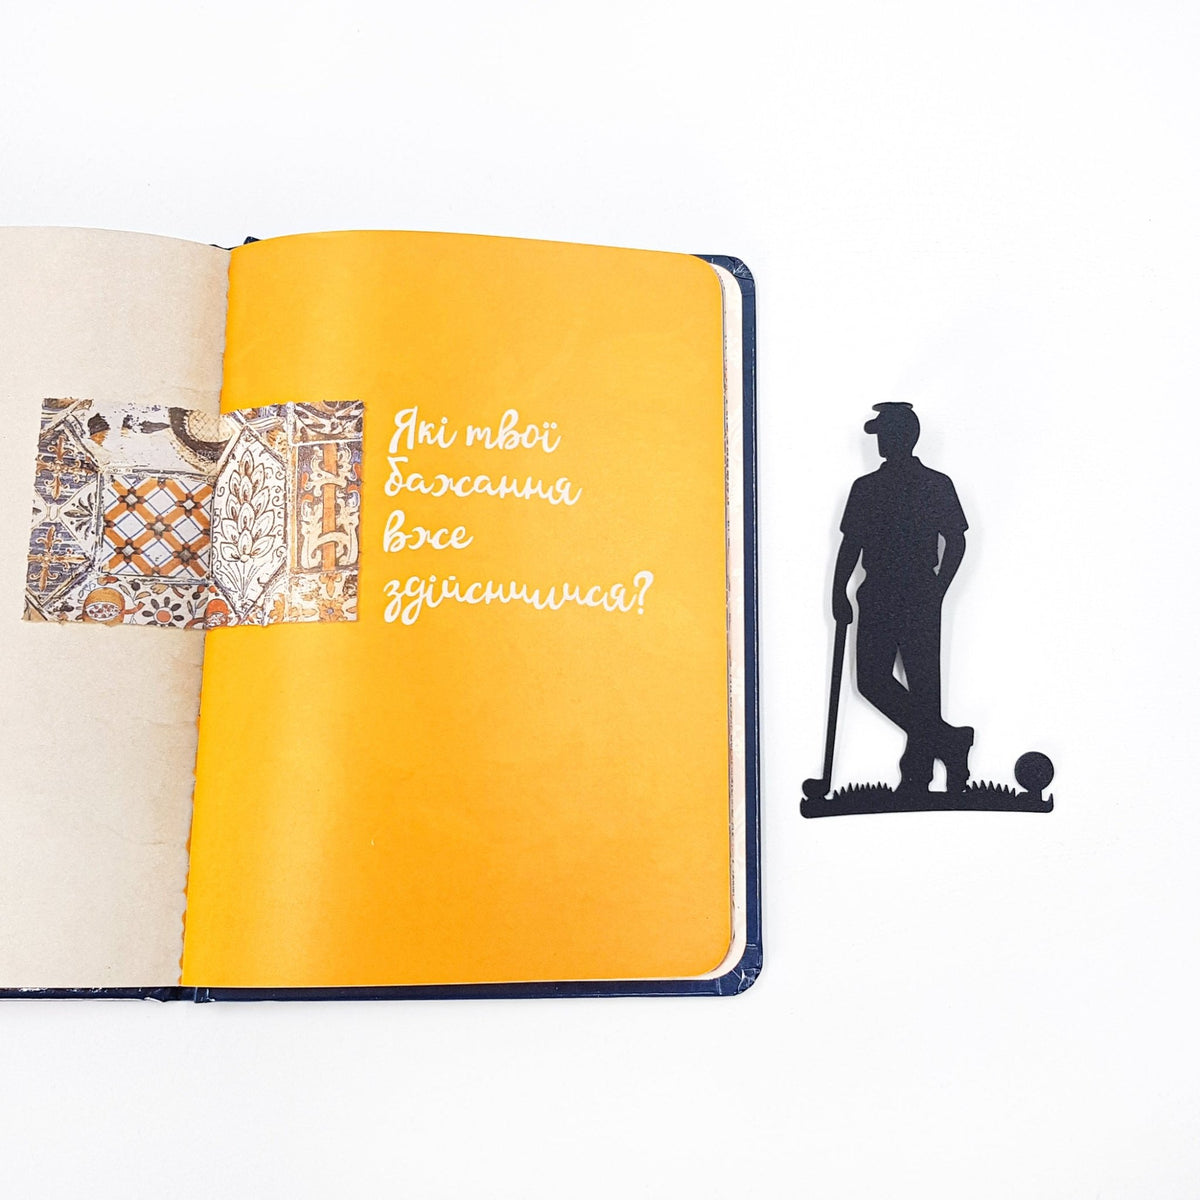 Які твої
бажання
вже
здійснилися?